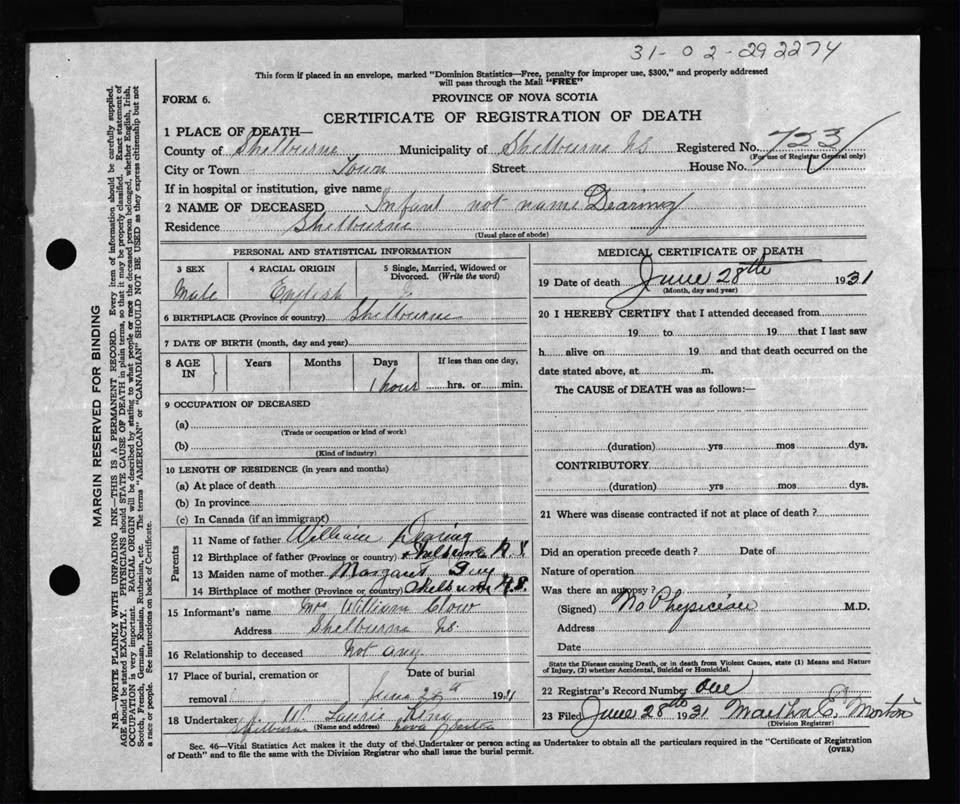 31-02-292274
This form if placed in an envelope, marked "Dominion Statistics—Free, penalty for improper use, $300," and properly addressed
will pass through the Mail "FREE"
FORM 6.
PROVINCE OF NOVA SCOTIA
CERTIFICATE OF REGISTRATION OF DEATH
1 PLACE OF DEATH—
County of Shelburne Municipality of Shelburne NS Registered No. 723
(For use of Registrar General only)
City or Town Town Street House No.
If in hospital or institution, give name
2 NAME OF DECEASED Infant not name Dearing
Residence Shelburne
(Usual place of abode)
PERSONAL AND STATISTICAL INFORMATION
3 SEX 4 RACIAL ORIGIN 5 Single, Married, Widowed or
Divorced. (Write the word)
Male English
6 BIRTHPLACE (Province or country) Shelburne
7 DATE OF BIRTH (month, day and year)
8 AGE IN Years Months Days If less than one day,
1 hour hrs. or min.
9 OCCUPATION OF DECEASED
(a)
(Trade or occupation or kind of work)
(b)
(Kind of industry)
10 LENGTH OF RESIDENCE (in years and months)
(a) At place of death
(b) In province
(c) In Canada (if an immigrant)
Parents
11 Name of father William Dearing
12 Birthplace of father (Province or country) Shelburne N.S.
13 Maiden name of mother Margaret Guy
14 Birthplace of mother (Province or country) Shelburne N.S.
15 Informant's name Mrs William Clow
Address Shelburne NS.
16 Relationship to deceased Not any
17 Place of burial, cremation or Date of burial
removal June 28th 1931
18 Undertaker King
(Name and address)
Shelburne Nova Scotia
MEDICAL CERTIFICATE OF DEATH
19 Date of death June 28th 1931
(Month, day and year)
20 I HEREBY CERTIFY that I attended deceased from
19 to 19 that I last saw
h alive on 19 and that death occurred on the
date stated above, at m.
The CAUSE of DEATH was as follows:—
(duration) yrs mos dys.
CONTRIBUTORY
(duration) yrs. mos dys.
21 Where was disease contracted if not at place of death?
Did an operation precede death? Date of
Nature of operation
Was there an autopsy?
(Signed) No Physician M.D.
Address
Date
State the Disease causing Death, or in death from Violent Causes, state (1) Means and Nature
of Injury, (2) whether Accidental, Suicidal or Homicidal.
22 Registrar's Record Number One
23 Filed June 28th 1931 Martha E. Morton
(Division Registrar)
Sec. 46—Vital Statistics Act makes it the duty of the Undertaker or person acting as Undertaker to obtain all the particulars required in the "Certificate of Registration
of Death" and to file the same with the Division Registrar who shall issue the burial permit.
(OVER)
MARGIN RESERVED FOR BINDING
N.B.—WRITE PLAINLY WITH UNFADING INK—THIS IS A PERMANENT RECORD. Every item of information should be carefully supplied.
AGE should be stated EXACTLY. PHYSICIANS should STATE CAUSE OF DEATH in plain terms, so that it may be properly classified. Exact statement of
OCCUPATION is very important. RACIAL ORIGIN will be described by stating to what people or race the deceased person belonged, whether English, Irish,
Scotch, French, German, Russian, Ruthenian, etc. The terms "AMERICAN" or "CANADIAN" SHOULD NOT BE USED as they express citizenship but not
a race or people. See instructions on back of Certificate.